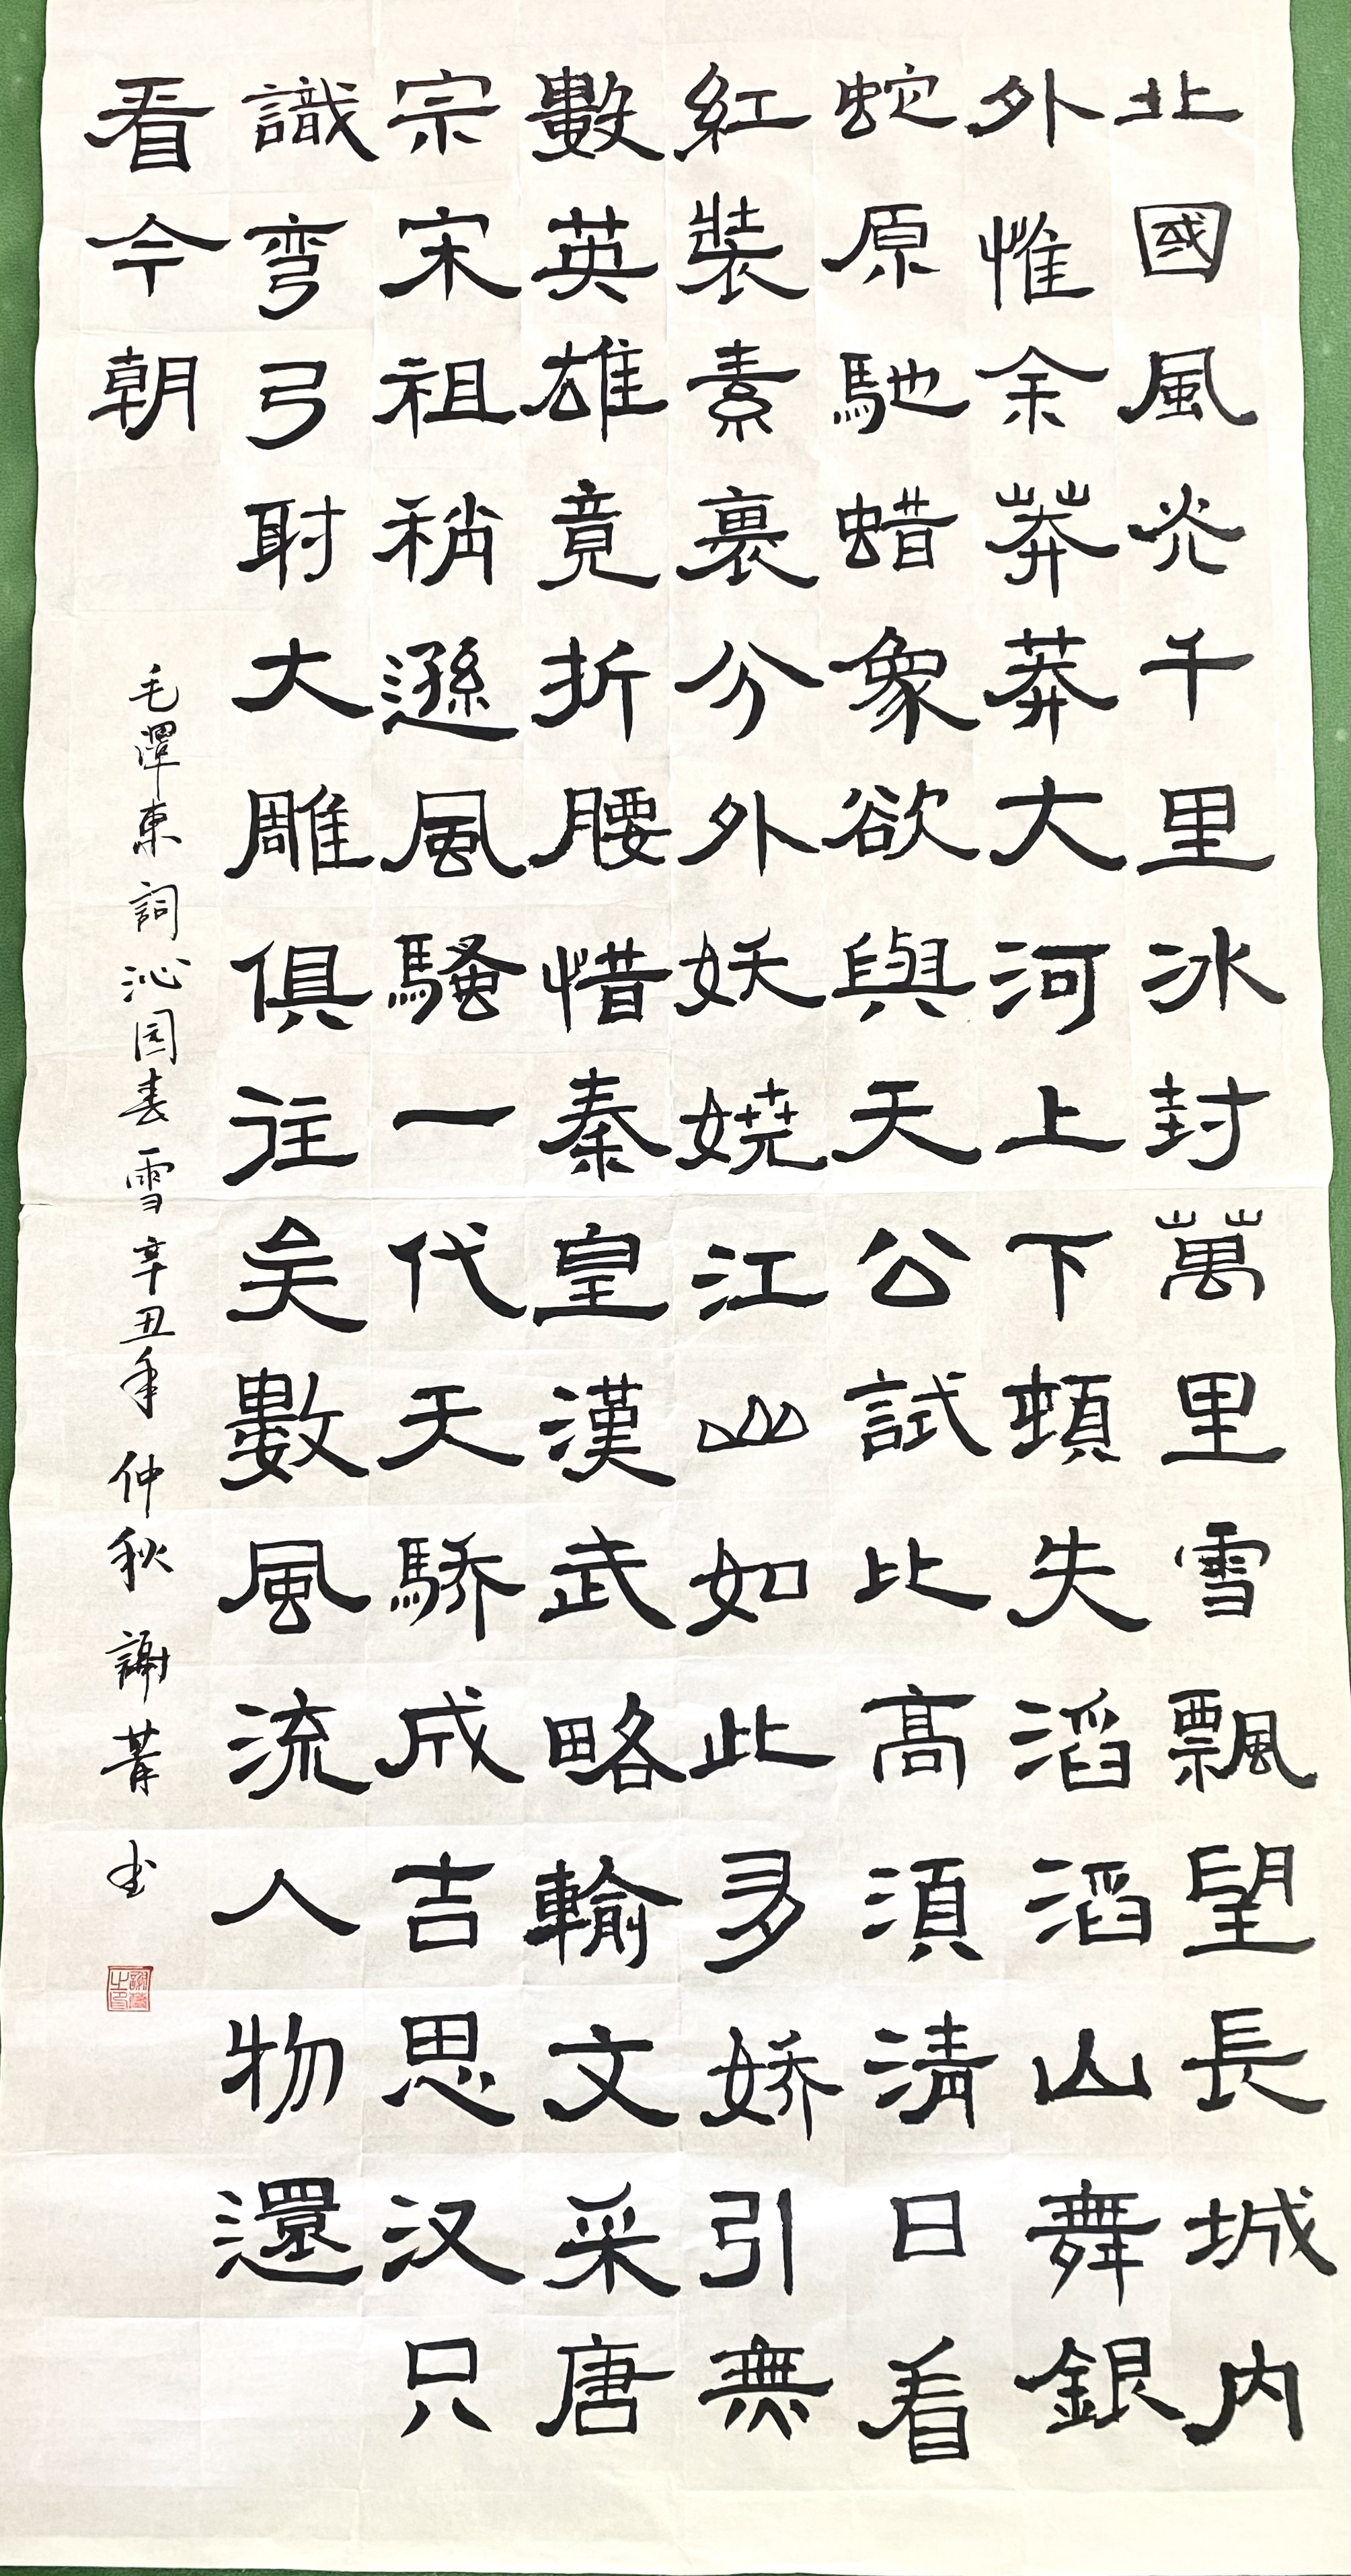 北國風光千里冰封萬里雪飄望長城内
外惟余莽莽大河上下頓失滔滔山舞銀
蛇原馳蜡象欲與天公試比高須清日看
紅裝素裹分外妖嬈江山如此多娇引無
數英雄竟折腰惜秦皇漢武略輸文采唐
宗宋祖稍遜風騷一代天驕成吉思汉只
識弯弓射大雕俱往矣數風流人物還
看今朝
毛澤東詞沁园春雪辛丑年仲秋謝菁书